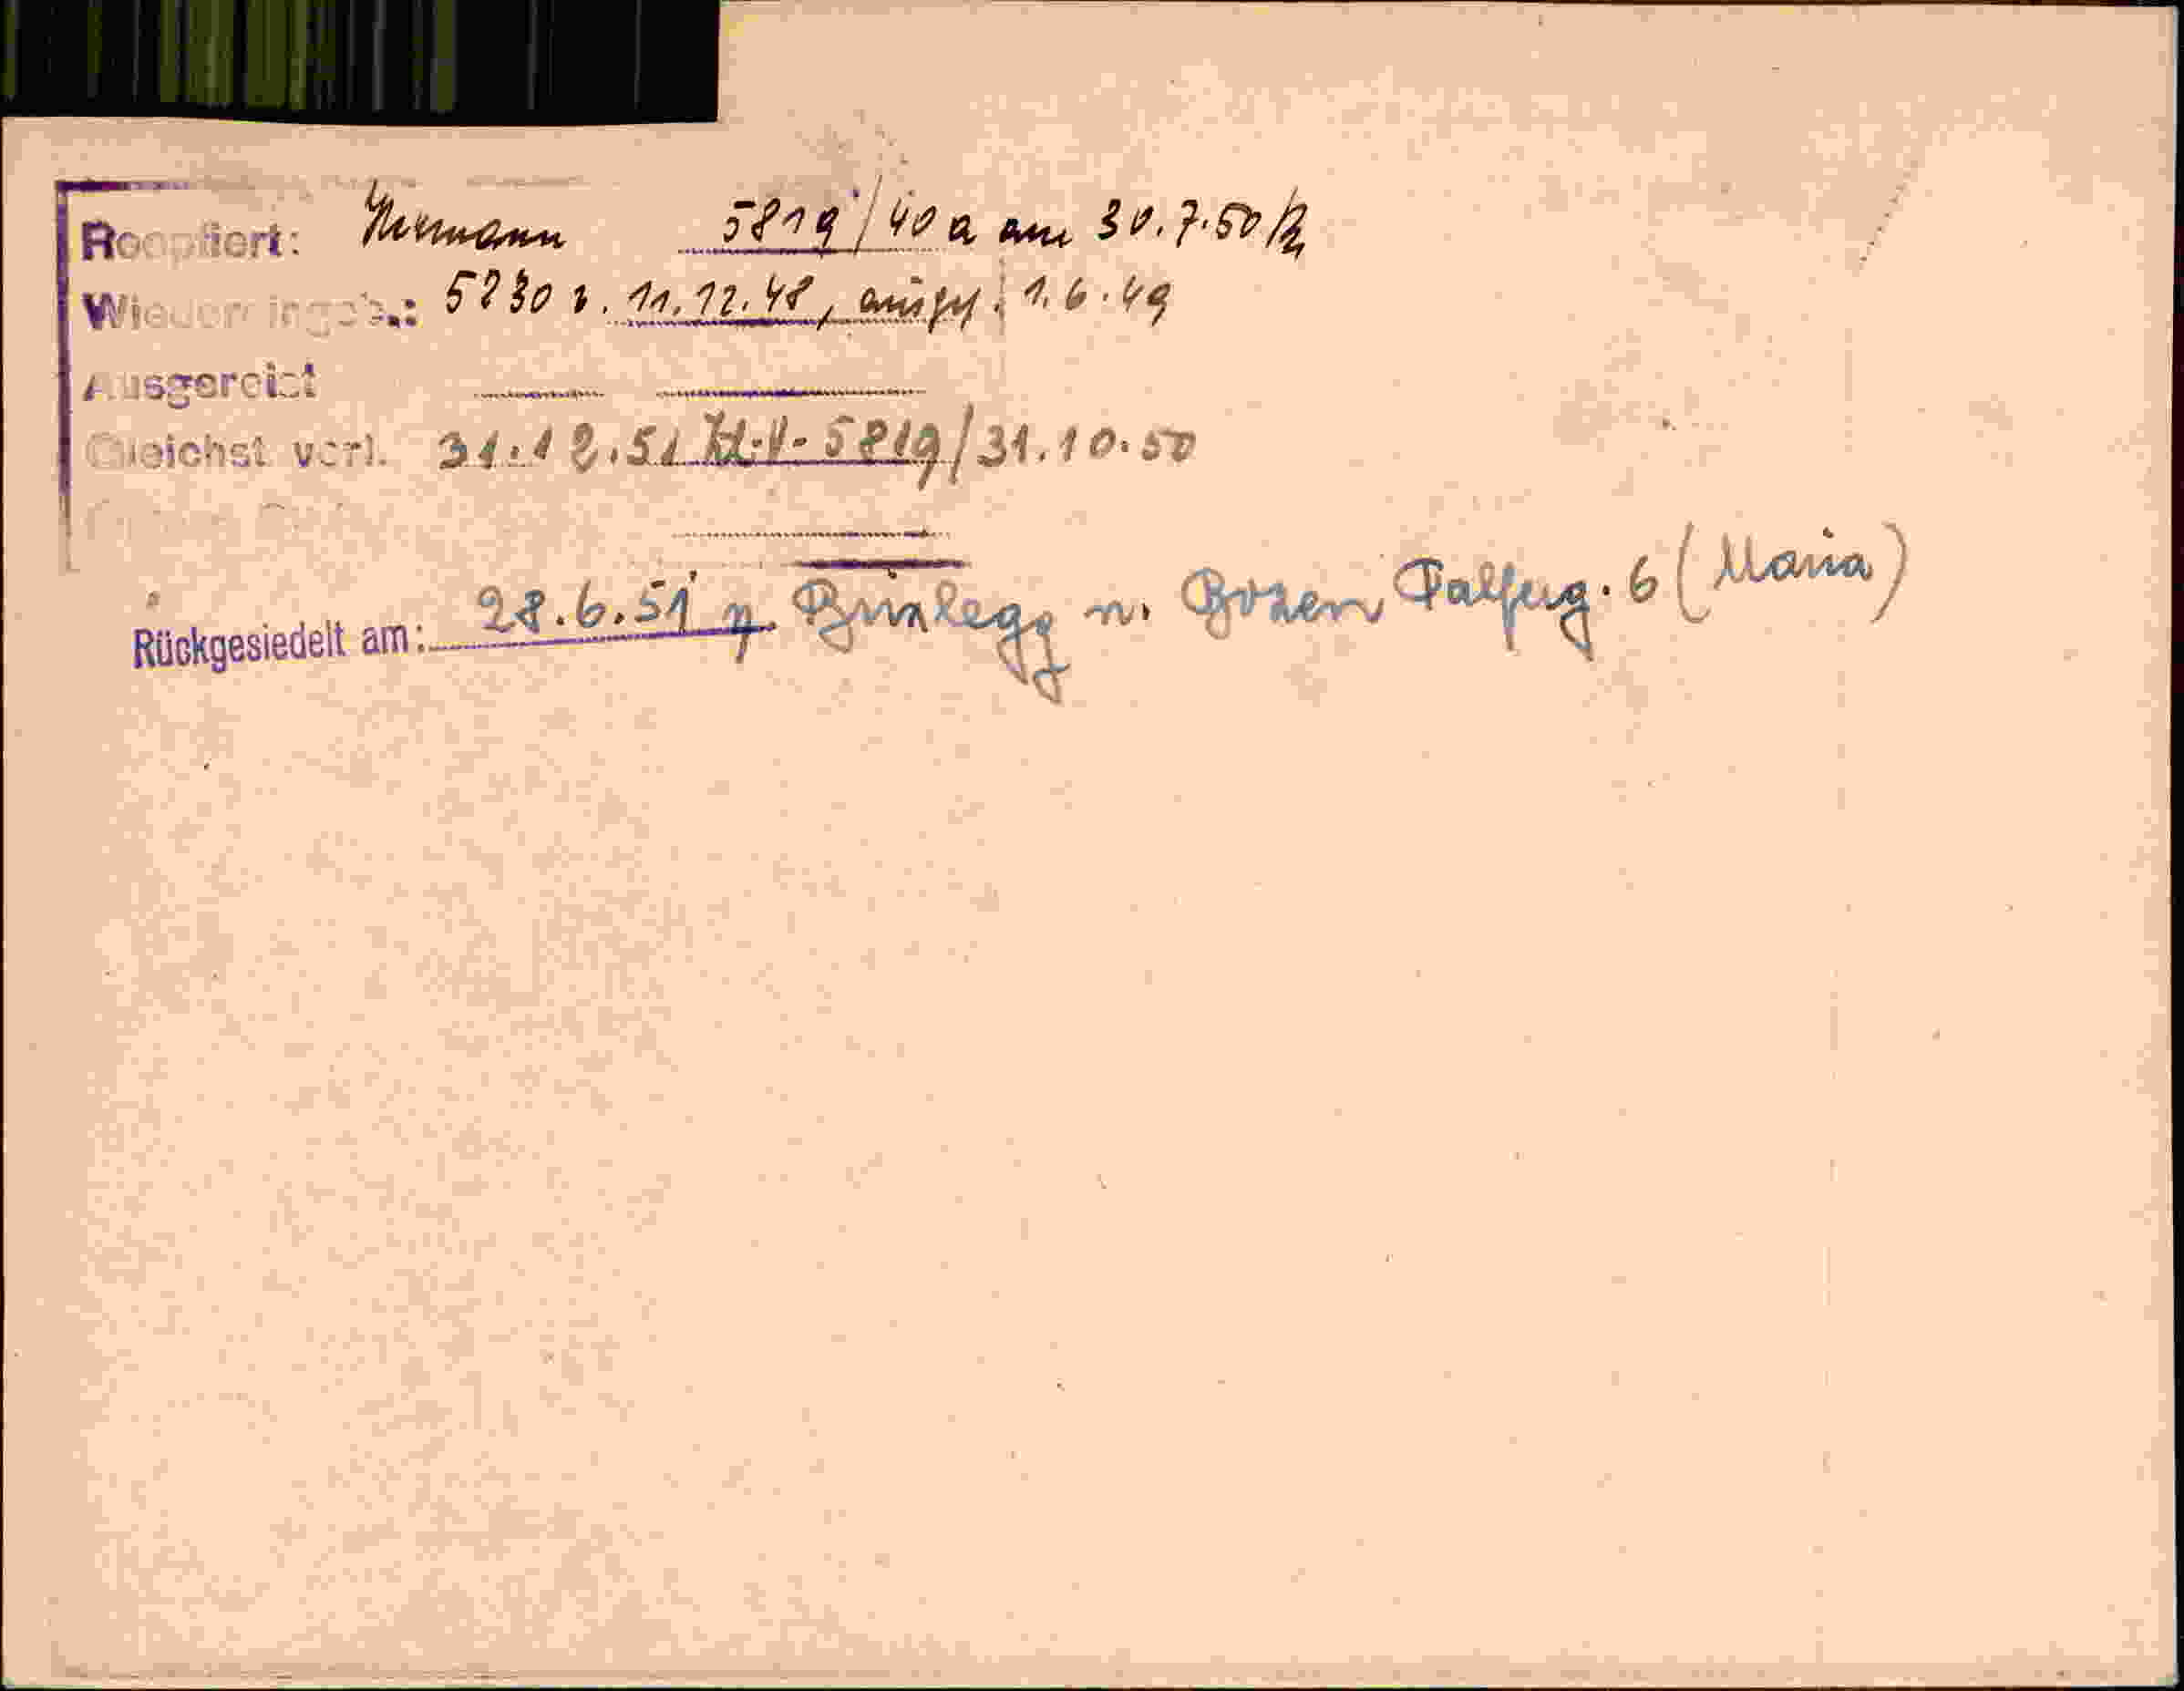 Reoptiert: Hermann 5819/40 a am 30.7.50
Wiedereingeb.: 5230 v. 11.12.48, 1.6.49
Ausgereist
Gleichst verl. 31.12.51 5819/31.10.50
Rückgesiedelt am: 28.6.51 Brixlegg n. Bozen 6 (Maria)